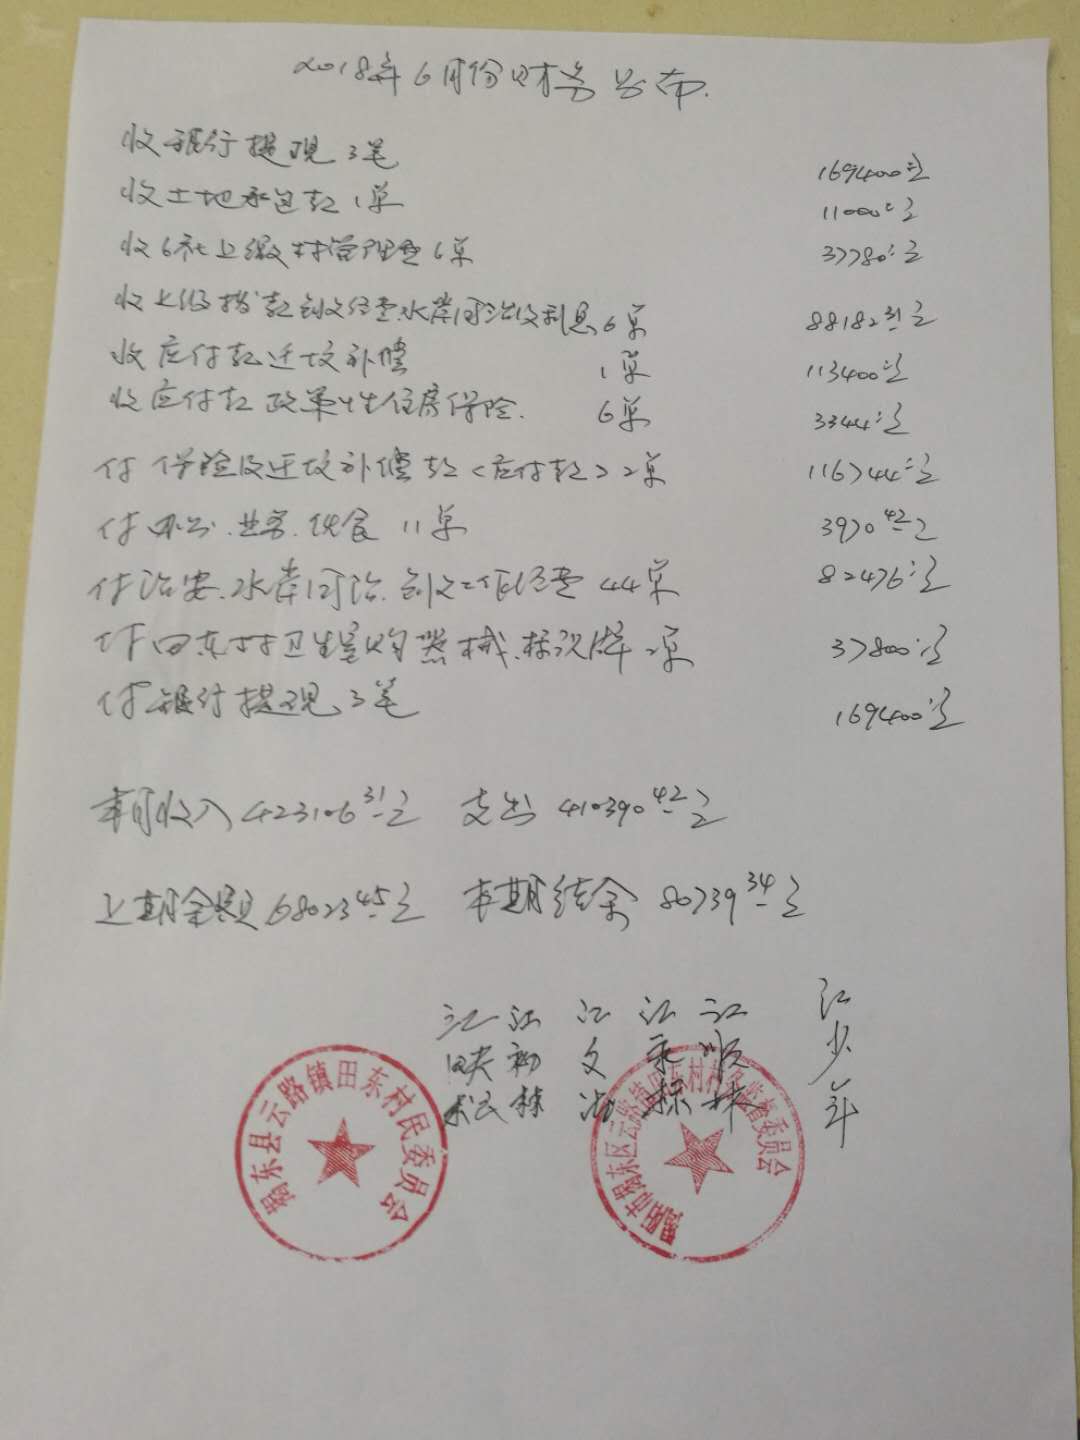 2018年6月份财务公布.
收银行提现3笔 169400元
收土地承包款1单 11000元
收6社上缴村管理费6单 37780元
收上级拨款创文经费.水岸同治及利息6单 88182.31元
收应付款迁坟补偿 1单 113400元
收应付款政策性住房保险. 6单 3344元
付保险及迁坟补偿款<应付款>2单 116744元
付办公.业务.伙食11单 3970.42元
付治安.水岸同治.创文工作经费44单 82476元
付田东村卫生室购器械.标识牌2单 37800元
付银行提现3笔 169400元
本月收入423106.31元 支出410390.42元
上期余额68023.45元 本期结余80739.34元
江 江 江 江 江 江少年
初 文 永 顺
林
揭东县云路镇田东村民委员会
揭阳市揭东区云路镇田东村村务监督委员会